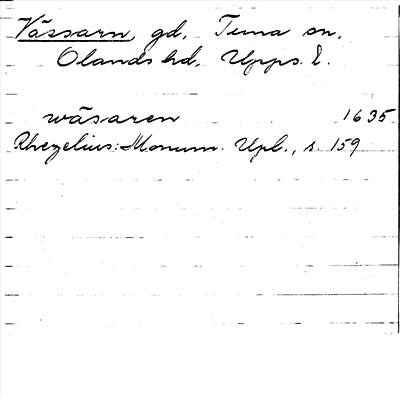 Vässarn, gd, Tuna sn,
Olands hd, Upps. l.
wäsaren 1635
Rhezelius: Monum. Upl., s. 159